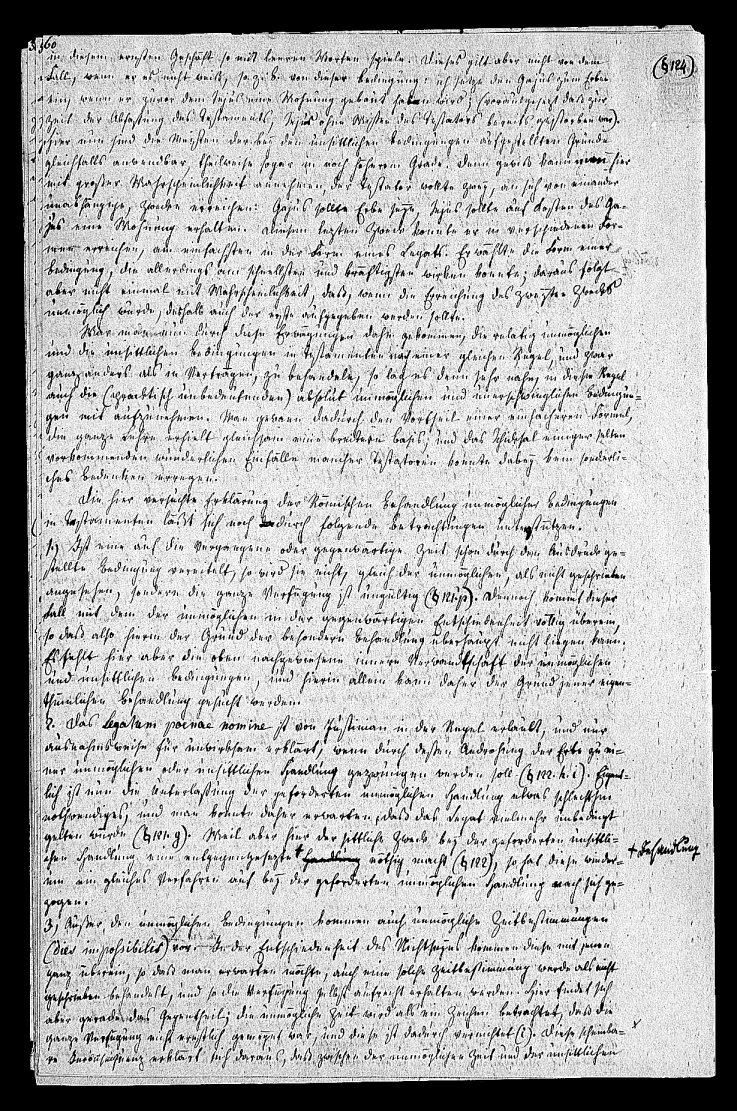 360
(§124)
in diesem ernsten Geschäft so mit leeren Worten spiele. Dieses gilt aber nicht von dem
Fall, wenn er es nicht weiß, so z. B. von dieser Bedingung: ich setze den Gajus zum Erben
ein, wenn er zuvor dem Sejus eine Wohnung gebaut haben wird; (vorausgesetzt daß zur
Zeit der Abfassung des Testaments, Sejus ohne Wissen des Testators bereits gestorben war).
Hier nun sind die Meisten der bey den unsittlichen Bedingungen aufgestellten Gründe
gleichfalls anwendbar, theilweise sogar in noch höherem Grade. Denn gewiß kann man hier
mit großer Wahrscheinlichkeit annehmen, der Testator wollte zwey, an sich von einander
unabhängige, Zwecke erreichen: Gajus sollte Erbe seyn, Sejus sollte auf Kosten des Ga-
jus eine Wohnung erhalten. Diesen letzten Zweck konnte er in verschiedenen For-
men erreichen, am einfachsten in der Form eines Legats. Er wählte die Form einer
Bedingung, die allerdings am schnellsten und kräftigsten wirken konnte; daraus folgt
aber nicht einmal mit Wahrscheinlichkeit, daß, wenn die Erreichung des zweyten Zwecks
unmöglich wurde, deshalb auch der erste aufgegeben werden sollte.
War man nun durch diese Erwägungen dahin gekommen, die relativ unmöglichen
und die unsittlichen Bedingungen in Testamenten nach einer gleichen Regel, und zwar
ganz anders als in Verträgen, zu behandeln, so lag es denn sehr nahe, in dieser Regel
auch die (praktisch unbedeutenden) absolut unmöglichen und unerschwinglichen Bedingun-
gen mit aufzunehmen. Man gewann dadurch den Vortheil einer einfacheren Formel,
die ganze Lehre erhielt gleichsam eine breitere Basis, und das Schicksal einiger selten
vorkommenden wunderlichen Einfälle mancher Testatoren konnte dabey kein sonderli-
ches Bedenken erregen.
Die hier versuchte Erklärung der Römischen Behandlung unmöglicher Bedingungen
in Testamenten läßt sich noch durch folgende Betrachtungen unterstützen.
1.) Ist eine auf die vergangene oder gegenwärtige Zeit schon durch den Ausdruck ge-
stellte Bedingung vereitelt, so wird sie nicht, gleich der unmöglichen, als nicht geschrieben
angesehen, sondern die ganze Verfügung ist ungültig (§ 121. p). Dennoch kommt dieser
Fall mit dem der unmöglichen in der gegenwärtigen Entschiedenheit völlig überein,
so daß also hierin der Grund der besondern Behandlung überhaupt nicht liegen kann.
Es fehlt hier aber die oben nachgewiesene innere Verwandtschaft der unmöglichen
und unsittlichen Bedingungen, und hierin allein kann daher der Grund jener eigen-
thümlichen Behandlung gesucht werden.
2. Das Legatum poenae nomine ist von Justinian in der Regel erlaubt, und nur
ausnahmsweise für unwirksam erklärt, wenn durch dessen Androhung der Erbe zu ei-
ner unmöglichen oder unsittlichen Handlung gezwungen werden soll (§ 122. h. i). Eigent-
lich ist nun die Unterlassung der geforderten unmöglichen Handlung etwas schlechthin
nothwendiges, und man konnte daher erwarten, daß das Legat vielmehr unbedingt
gelten würde (§ 121. g). Weil aber hier der sittliche Zweck bey der geforderten unsittli-
chen Handlung eine entgegengesetzte + nöthig macht (§ 122), so hat diese wieder-
um ein gleiches Verfahren auf bey der geforderten unmöglichen Handlung nach sich ge-
zogen.
+ Behandlung
3.) Außer den unmöglichen Bedingungen kommen auch unmögliche Zeitbestimmungen
(dies impossibilis) vor. In der Entschiedenheit des Nichtseyns kommen diese mit jenen
ganz überein, so daß man erwarten möchte, auch eine solche Zeitbestimmung werde als nicht
geschrieben behandelt, und so die Verfügung selbst aufrecht erhalten werden. Hier findet sich
aber gerade das Gegentheil; die unmögliche Zeit wird als ein Zeichen betrachtet, daß die
ganze Verfügung nicht ernstlich gemeynt war, und diese ist dadurch vernichtet (l). Diese scheinba-
re Inconsequenz erklärt sich daraus, daß zwischen der unmöglichen Zeit und der unsittlichen